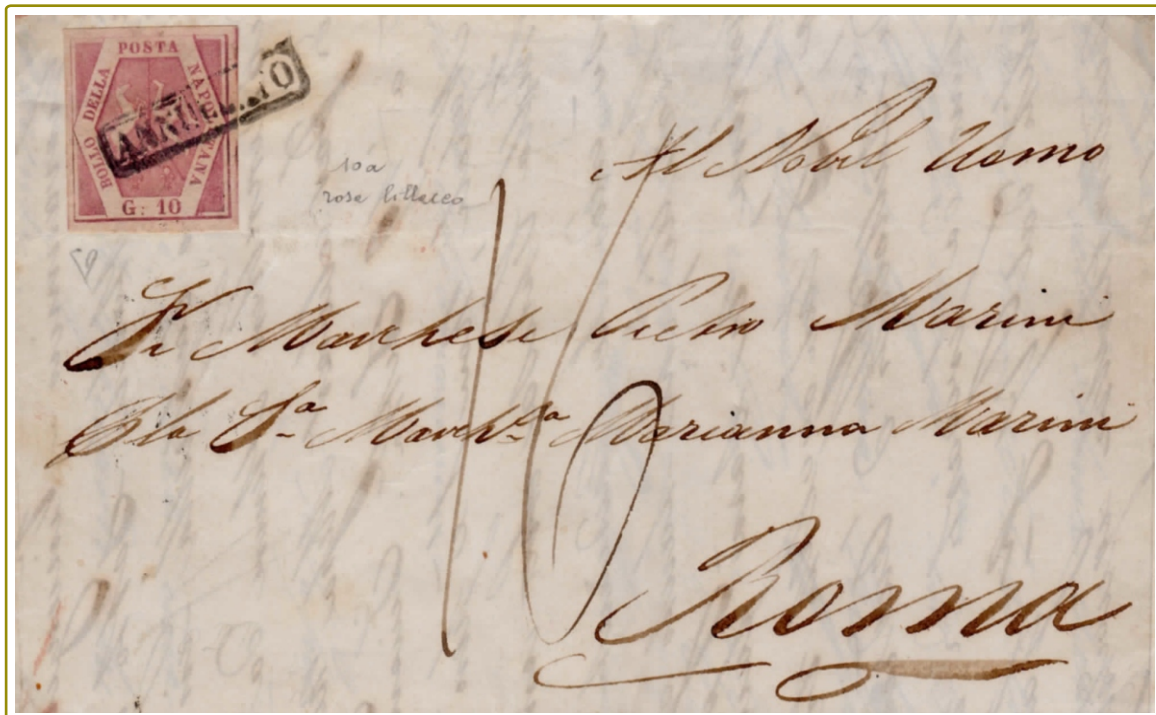 BOLLO DELLA POSTA NAPOLETANA
G: 10
ANNULLATO
10a
rosa lillaceo
Al Nobil Uomo
Sr Marchese Pietro Marini
Sa Marchsa Marianna Marini
16
Roma